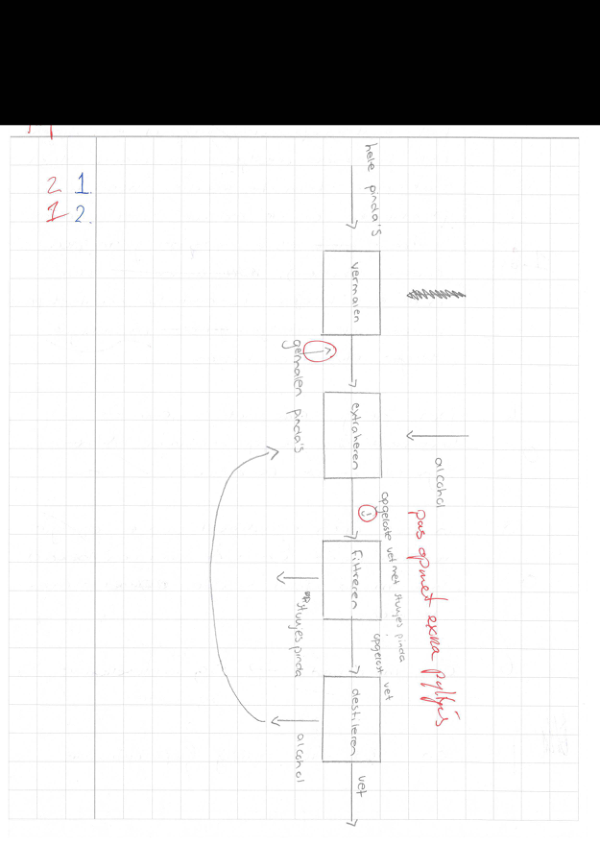 2 1.
1 2.
hele pinda's
vermalen
gemalen pinda's
extraheren
alcohol
opgeloste vet met stukjes pinda
pas op met extra pijltjes
filtreren
stukjes pinda
opgelost vet
destileren
alcohol
vet